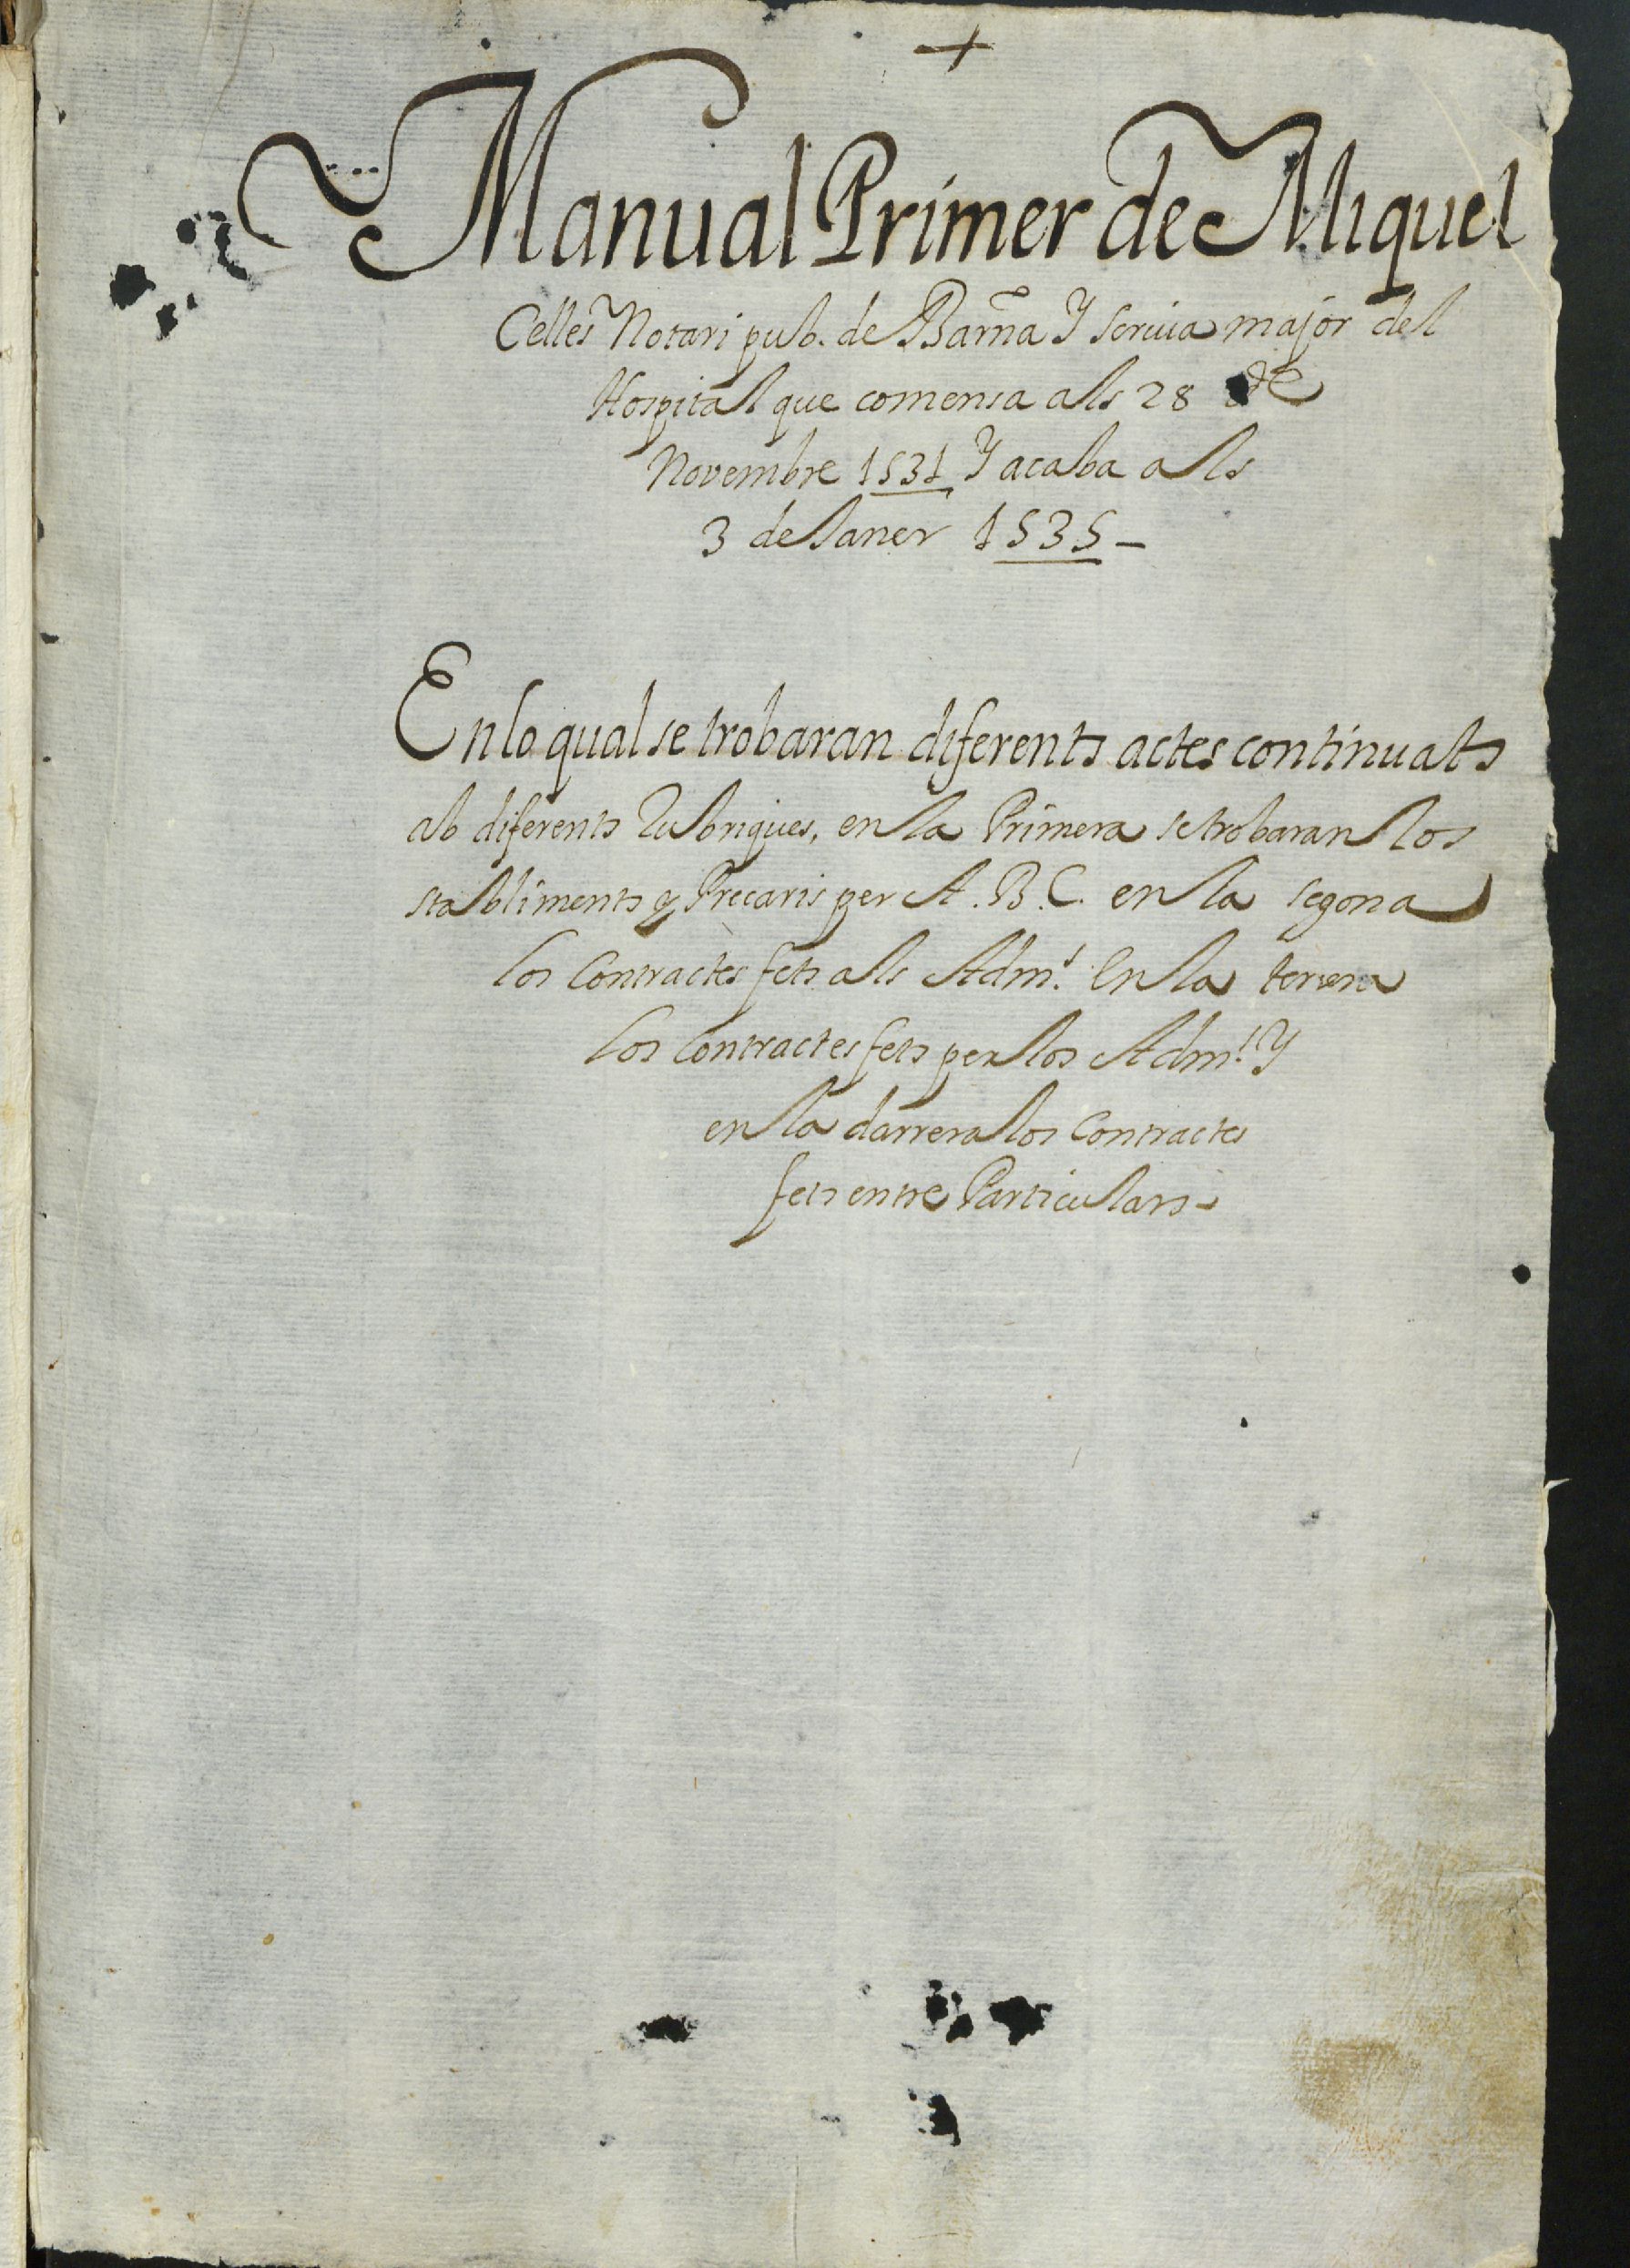 +
Manual Primer de Miquel
Celles Notari pub. de Barña Y scriua major del
Hospital que comensa als 28 de
Novembre 1531 Y acaba als
3 de Janer 1535 –
En lo qual se trobaran diferents actes continuats
ab diferents Rubriques, en la Primera se trobaran los
stabliments y Precaris per A. B. C. en la segona
los Contractes fets als Adm.s En la tercera
los Contractes fets per los Adm.s Y
en la darrera los Contractes
fets entre Particulars –